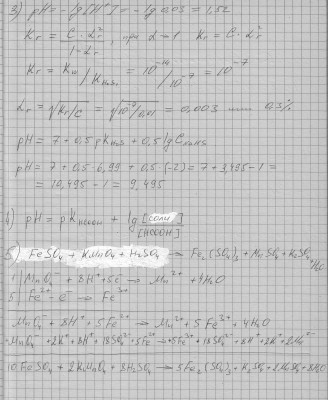 3) pH = -lg[H⁺] = -lg 0.03 = 1,52
Kг = C·αг² / 1-αг, при α→1 Kг = C·αг²
Kг = Kw / KH₂S₁ = 10⁻¹⁴ / 10⁻⁷ = 10⁻⁷
αг = √Kг/C = √10⁻⁷/0,01 = 0,003 или 0,3%
pH = 7 + 0,5 pKH₂S + 0,5 lg CNaHS
pH = 7 + 0,5·6,99 + 0,5·(-2) = 7 + 3,495 - 1 =
= 10,495 - 1 = 9,495
4) pH = pKHCOOH + lg [соли] / [HCOOH]
5) FeSO₄ + KMnO₄ + H₂SO₄ → Fe₂(SO₄)₃ + MnSO₄ + K₂SO₄ + H₂O
1| MnO₄⁻ + 8H⁺ + 5e⁻ → Mn²⁺ + 4H₂O
5| Fe²⁺ - e⁻ → Fe³⁺
MnO₄⁻ + 8H⁺ + 5Fe²⁺ → Mn²⁺ + 5Fe³⁺ + 4H₂O
10FeSO₄ + 2KMnO₄ + 8H₂SO₄ → 5Fe₂(SO₄)₃ + K₂SO₄ + 2MnSO₄ + 8H₂O